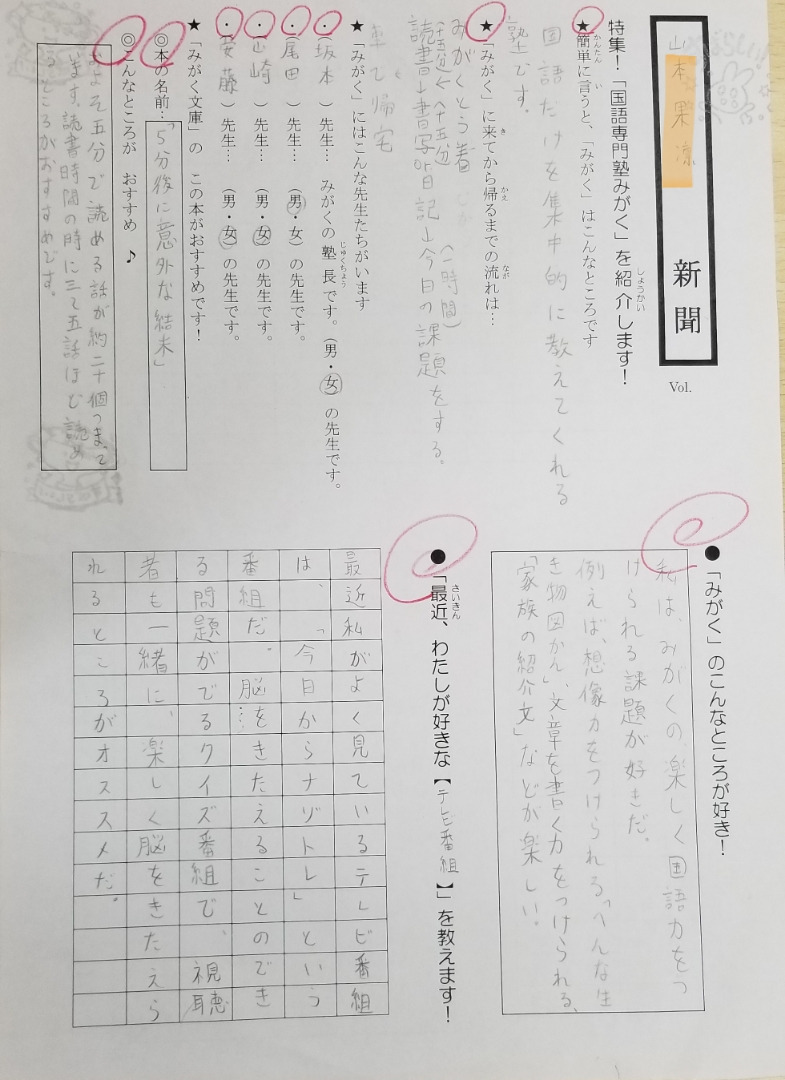 山本果凉
新聞
Vol.
特集！「国語専門塾みがく」を紹介します！
しょうかい
★簡単に言うと、「みがく」はこんなところです
かんたん い
国語だけを集中的に教えてくれる
塾です。
★「みがく」に来てから帰るまでの流れは…
き かえ なが
みがくとう着
(十五分) (十五分) (一時間)
読書→書写or日記→今日の課題をする。
車で帰宅
★「みがく」にはこんな先生たちがいます
・（坂本）先生… みがくの塾長です。（男・女）の先生です。
じゅくちょう
・（尾田）先生… （男・女）の先生です。
・（山崎）先生… （男・女）の先生です。
・（安藤）先生… （男・女）の先生です。
★「みがく文庫」の この本がおすすめです！
◎本の名前…「5分後に意外な結末」
◎こんなところが おすすめ♪
およそ五分で読める話が約二十個つまって
います。読書時間の時に三て五話ほど読め
るところがおすすめです。
●「みがく」のこんなところが好き！
私は、みがくの楽しく国語力をつ
けられる課題が好きだ。
例えば、想像力をつけられる「へんな生
き物図かん」、文章を書く力をつけられる、
「家族の紹介文」などが楽しい。
●「最近、わたしが好きな【テレビ番組】」を教えます！
さいきん
最近私がよく見ているテレビ番組
は、「今日からナゾトレ」という
番組だ。脳をきたえることのでき
る問題がでるクイズ番組で、視聴
者も一緒に、楽しく脳をきたえら
れるところがオススメだ。